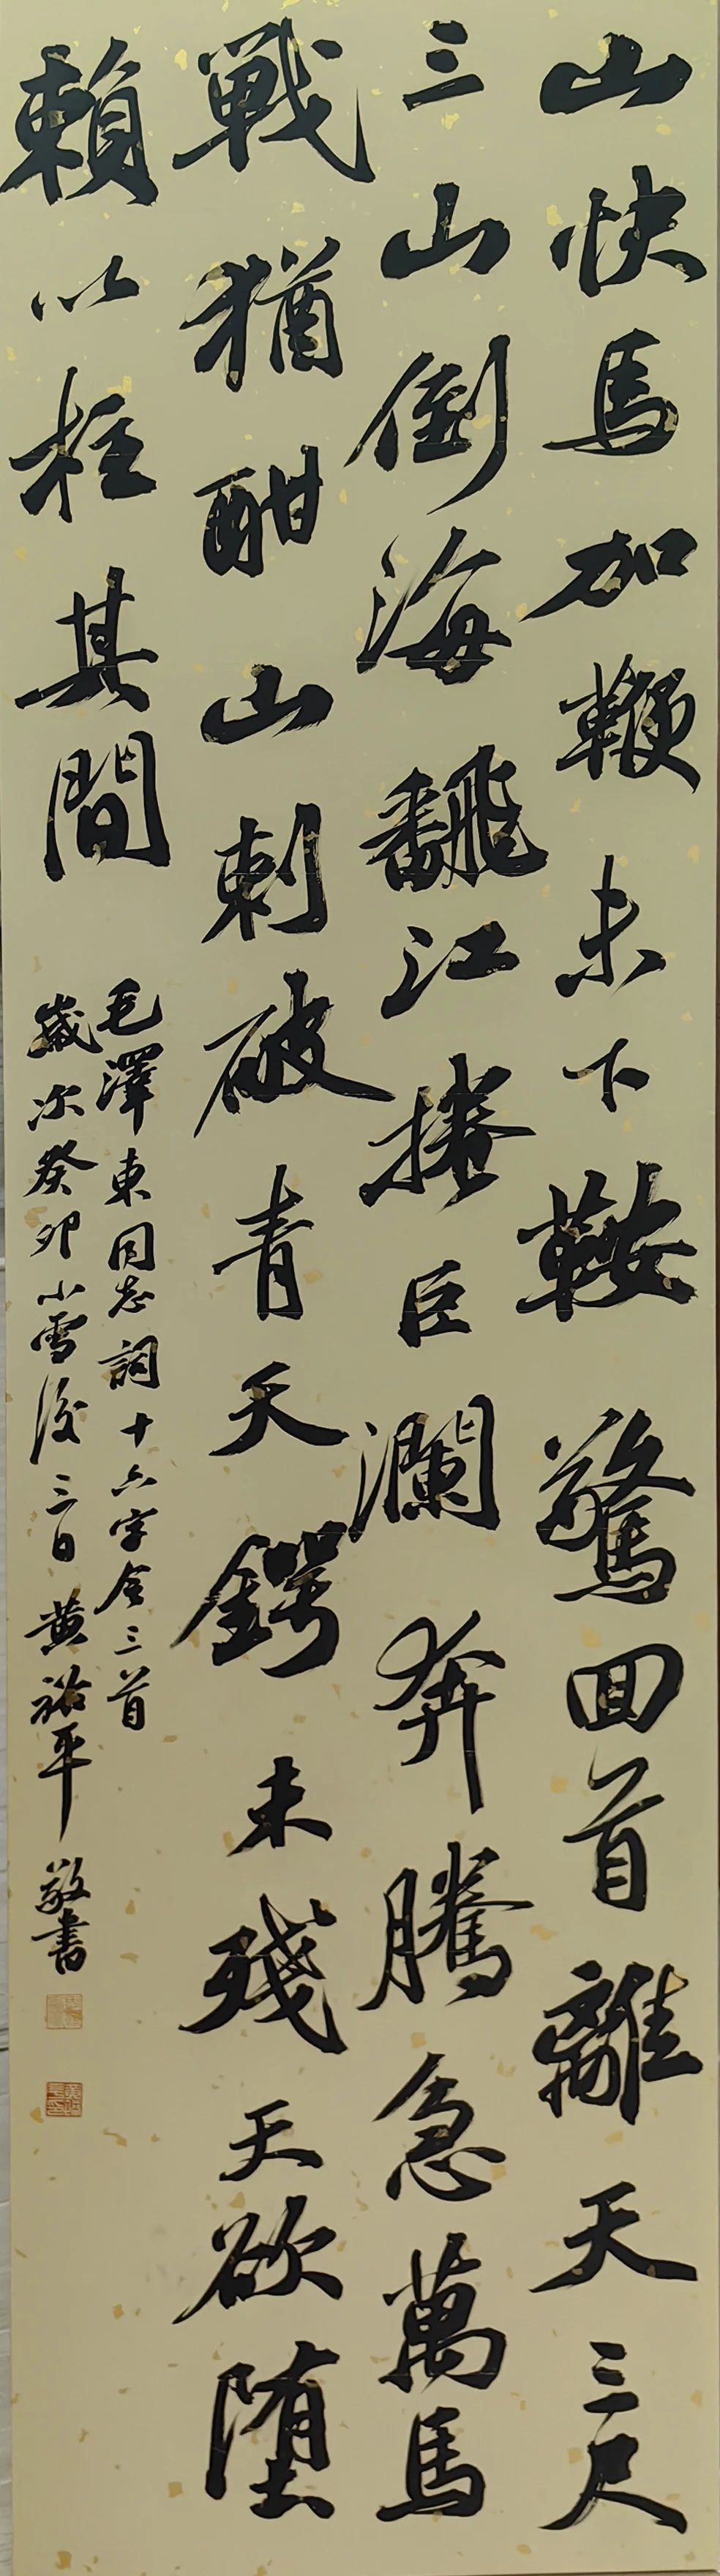 山快馬加鞭未下鞍驚回首離天三尺
三山倒海飜江捲巨瀾奔騰急萬馬
戰猶酣山刺破青天鍔未殘天欲堕
賴以柱其間
毛澤東同志詞十六字令三首
歲次癸卯小雪後三日黃裕平敬書